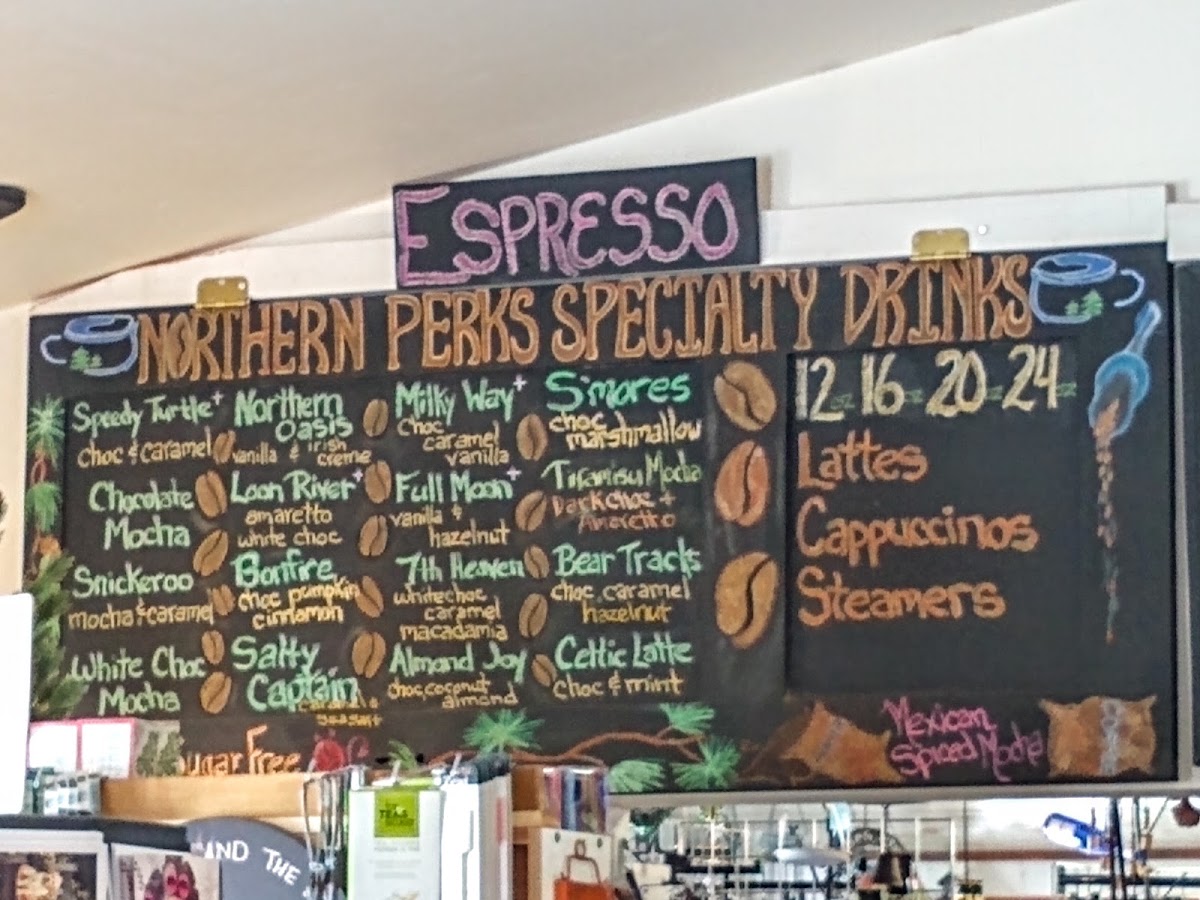 ESPRESSO
NORTHERN PERKS SPECIALTY DRINKS
Speedy Turtle+
choc & caramel
Chocolate
Mocha
Snickeroo
mocha & caramel
White Choc
Mocha
Northern
Oasis
vanilla & irish
creme
Loon River+
amaretto
white choc
Bonfire
choc pumpkin
cinnamon
Salty
Captain
caramel &
sea salt
Milky Way+
choc
caramel
vanilla
Full Moon+
vanilla &
hazelnut
7th Heaven
white choc
caramel
macadamia
Almond Joy
choc, coconut
almond
S'mores
choc
marshmallow
Tiramisu Mocha
Dark choc +
Amaretto
Bear Tracks
choc, caramel
hazelnut
Celtic Latte
choc & mint
12oz 16oz 20oz 24oz
Lattes
Cappuccinos
Steamers
Mexican
Spiced Mocha
ugar Free
TEAS
AND THE